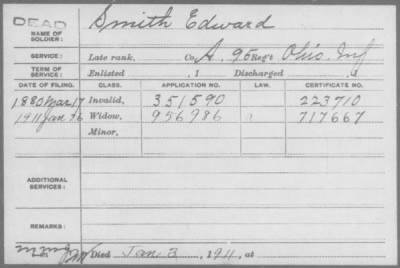 DEAD
NAME OF SOLDIER: Smith Edward
SERVICE: Late rank, Co. A. 95 Reg't Ohio. Inf
TERM OF SERVICE: Enlisted , 1 Discharged , 1
DATE OF FILING. CLASS. APPLICATION NO. LAW. CERTIFICATE NO.
1880 Mar 17 Invalid, 351590 223710
1911 Jan 26 Widow, 956786 717667
Minor,
ADDITIONAL SERVICES:
REMARKS:
Died Jan. 3, 1911, at